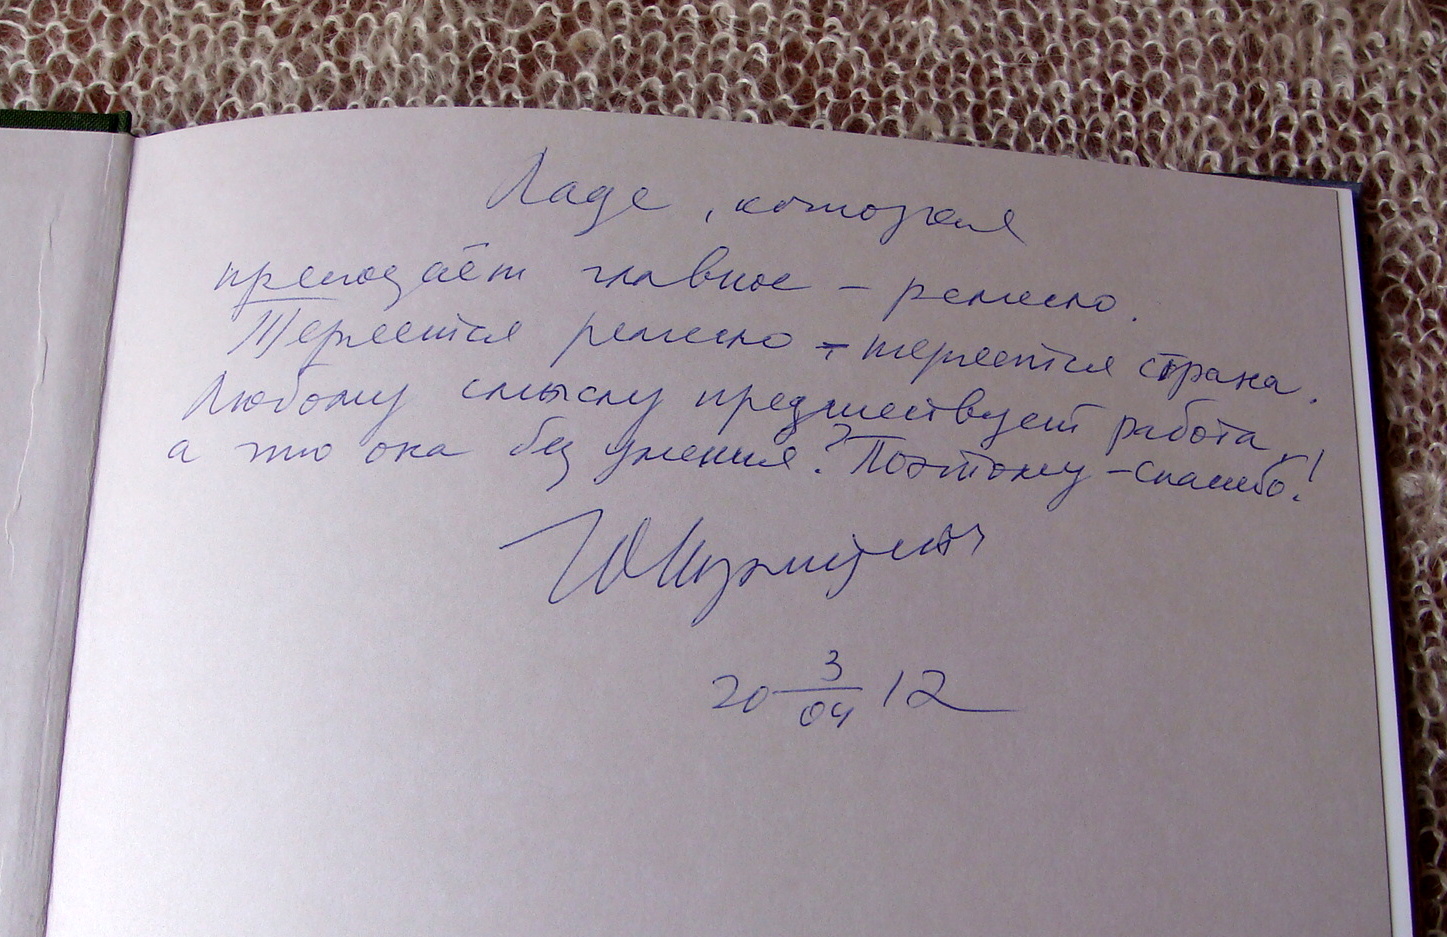 Ладе, которая
преподаёт главное – ремесло.
Теряется ремесло – теряется страна.
Любому смыслу предшествует работа,
а что она без умения? Поэтому – спасибо!
20 3/04 12